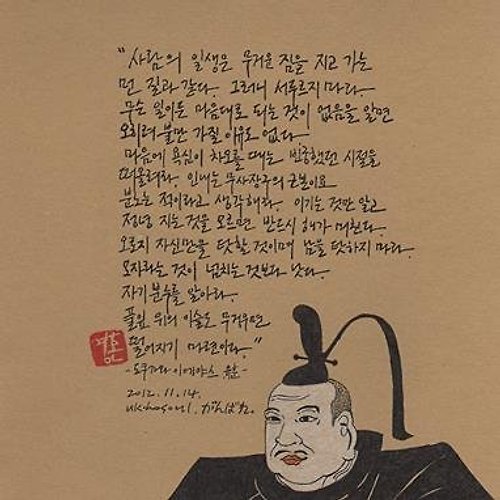 "사람의 일생은 무거운 짐을 지고 가는
먼 길과 같다. 그러니 서두르지 마라.
무슨 일이든 마음대로 되는 것이 없음을 알면
오히려 불만 가질 이유도 없다.
마음에 욕심이 차오를 때는 빈궁했던 시절을
떠올려라. 인내는 무사장구의 근본이요
분노는 적이라고 생각해라. 이기는 것만 알고
정녕 지는 것을 모르면 반드시 해가 미친다.
오로지 자신만을 탓할 것이며 남을 탓하지 마라.
모자라는 것이 넘치는 것보다 낫다.
자기 분수를 알아라.
풀잎 위의 이슬도 무거우면
떨어지기 마련이라."
-도쿠가와 이에야스 유훈-
2012.11.14.